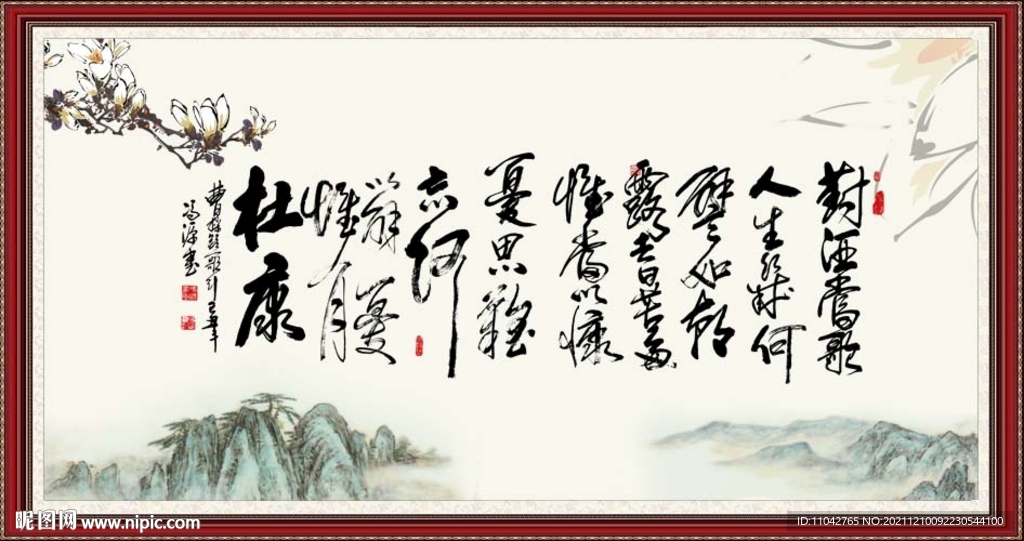 對酒當歌
人生幾何
譬如朝
露去日苦多
慨當以慷
憂思難
忘何
解憂
惟有
杜康
曹操短歌行己丑年
冯源書
昵图网 www.nipic.com
ID:11042765 NO:20211210092230544100